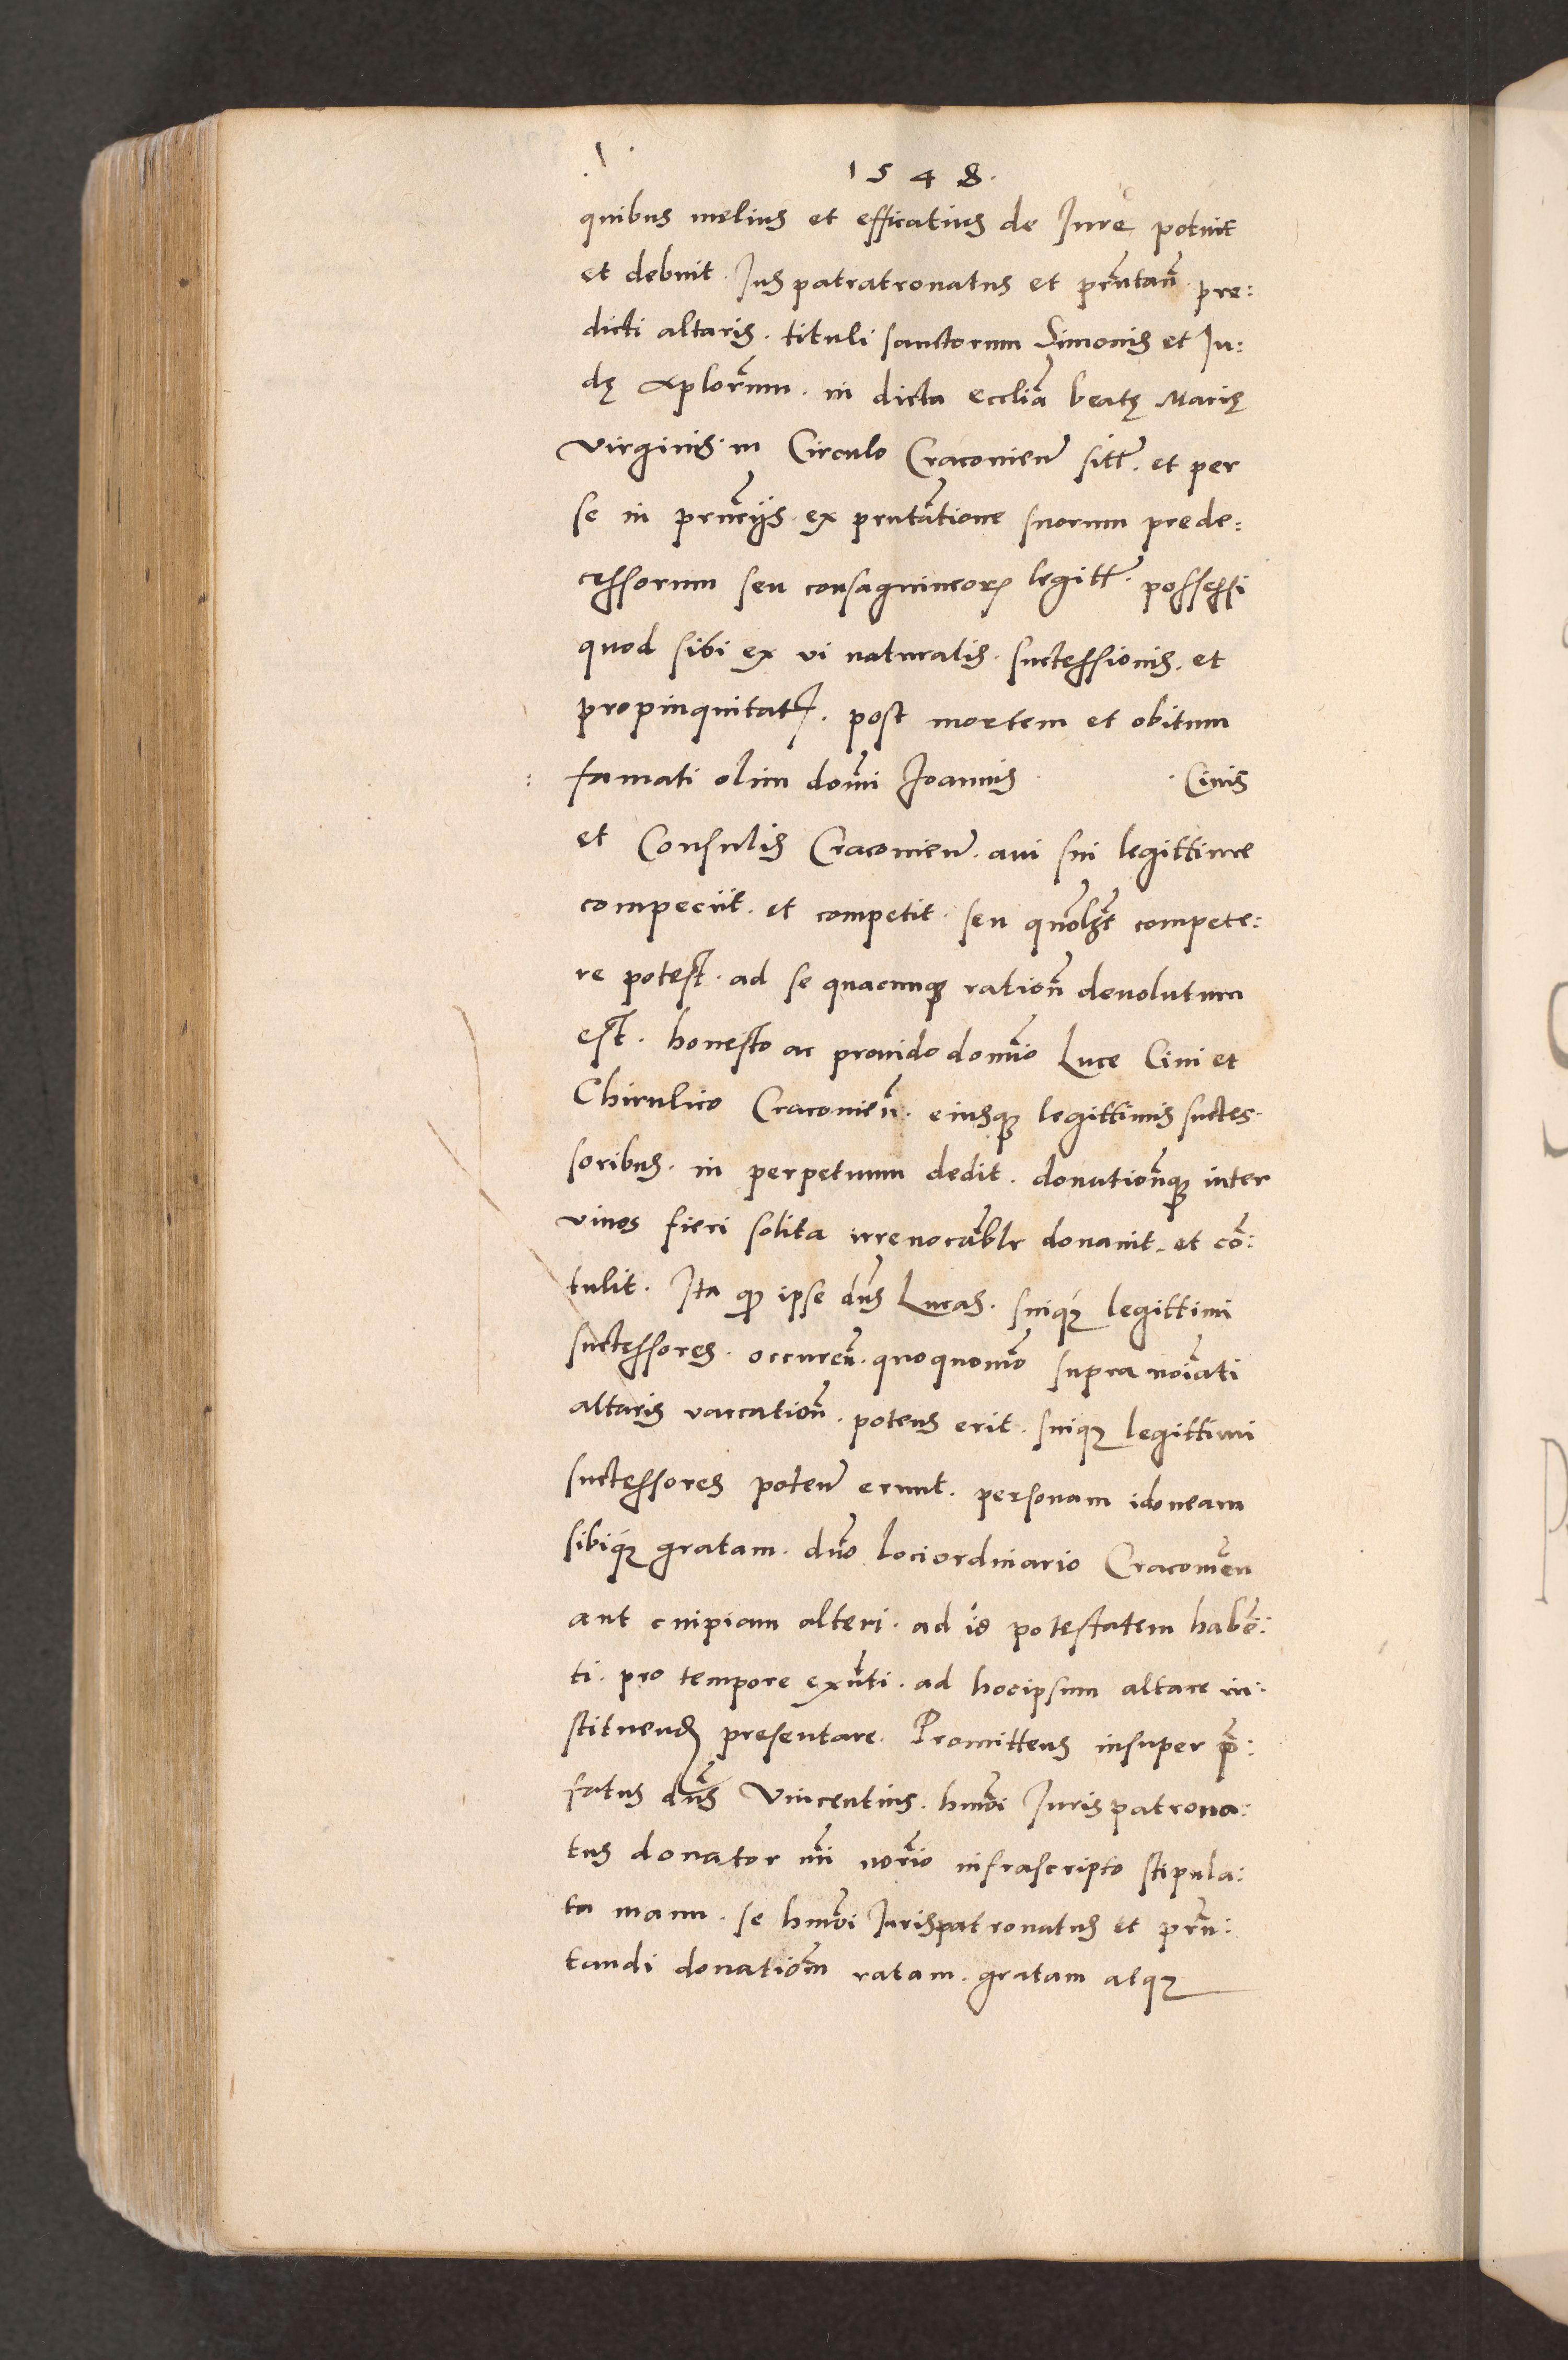 1548.
quibus melius et efficatius de Jure potuit
et debuit. Jus patratronatus et prñtañ pre:
dicti altaris. tituli sanctorum Simonis et Ju:
dę Aplorum. in dicta eccliã beatę Marię
virginis in Circulo Cracovien̄ sitt̄. et per
se in prñcijs ex prntãtione suorum prede:
cessorum seu consaguineorꝝ legitt̄. possessi
quod sibi ex vi naturalis. successionis. et
propinquitatꝭ. post mortem et obitum
famati olim domi Joannis . . Civis
et Consulis Cracovien̄. avi sui legittime
compeciit. et competit. seu quolꝫt compete:
re potest. ad se quacunqꝫ ration̄ devolutum
est. honesto ac provido domĩo Luce Civi et
Chirulico Cracovien̄. eiusqꝫ legittimis succes.
soribus. in perpetuum dedit. donationẽqꝫ inter
vivos fieri solita irrevocãblr donavit. et cõ:
tulit. Ita qꝫ ipse dñs Lucas. suiqꝫ legittimi
successores. occuren̄. quoquomõ supra noĩati
altaris vaccation̄. potens erit. suiqꝫ legittimi
successores poten̄ erunt. personam idoneam
sibiqꝫ gratam. dñо loci ordinario Cracovien̄
aut cuipiam alteri. ad id potestatem habẽ:
ti. pro tempore exñti. ad hocipsum altare in:
stituendꝭ presentare. Promittens insuper p̄:
fatus dñs Vincentius. hmõi Jurispatrona:
tus donator mĩ norĩo infrascripto stipula:
ta manu. se hmõi Jurispatronatus et prñ:
tandi donationem̄ ratam. gratam atqꝫ